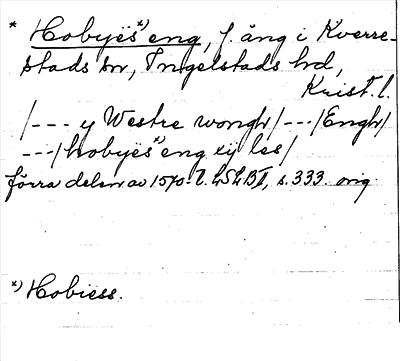 * Hobyës*) eng, f. äng i Kverre-
stads sn, Ingelstads hd,
Krist. l.
/--- y Westre wongh/---/Engh/
---/hobyës*) eng xij les/
förra delen av 1570-t. LSLBII, s. 333. orig.
*) Hobiess.